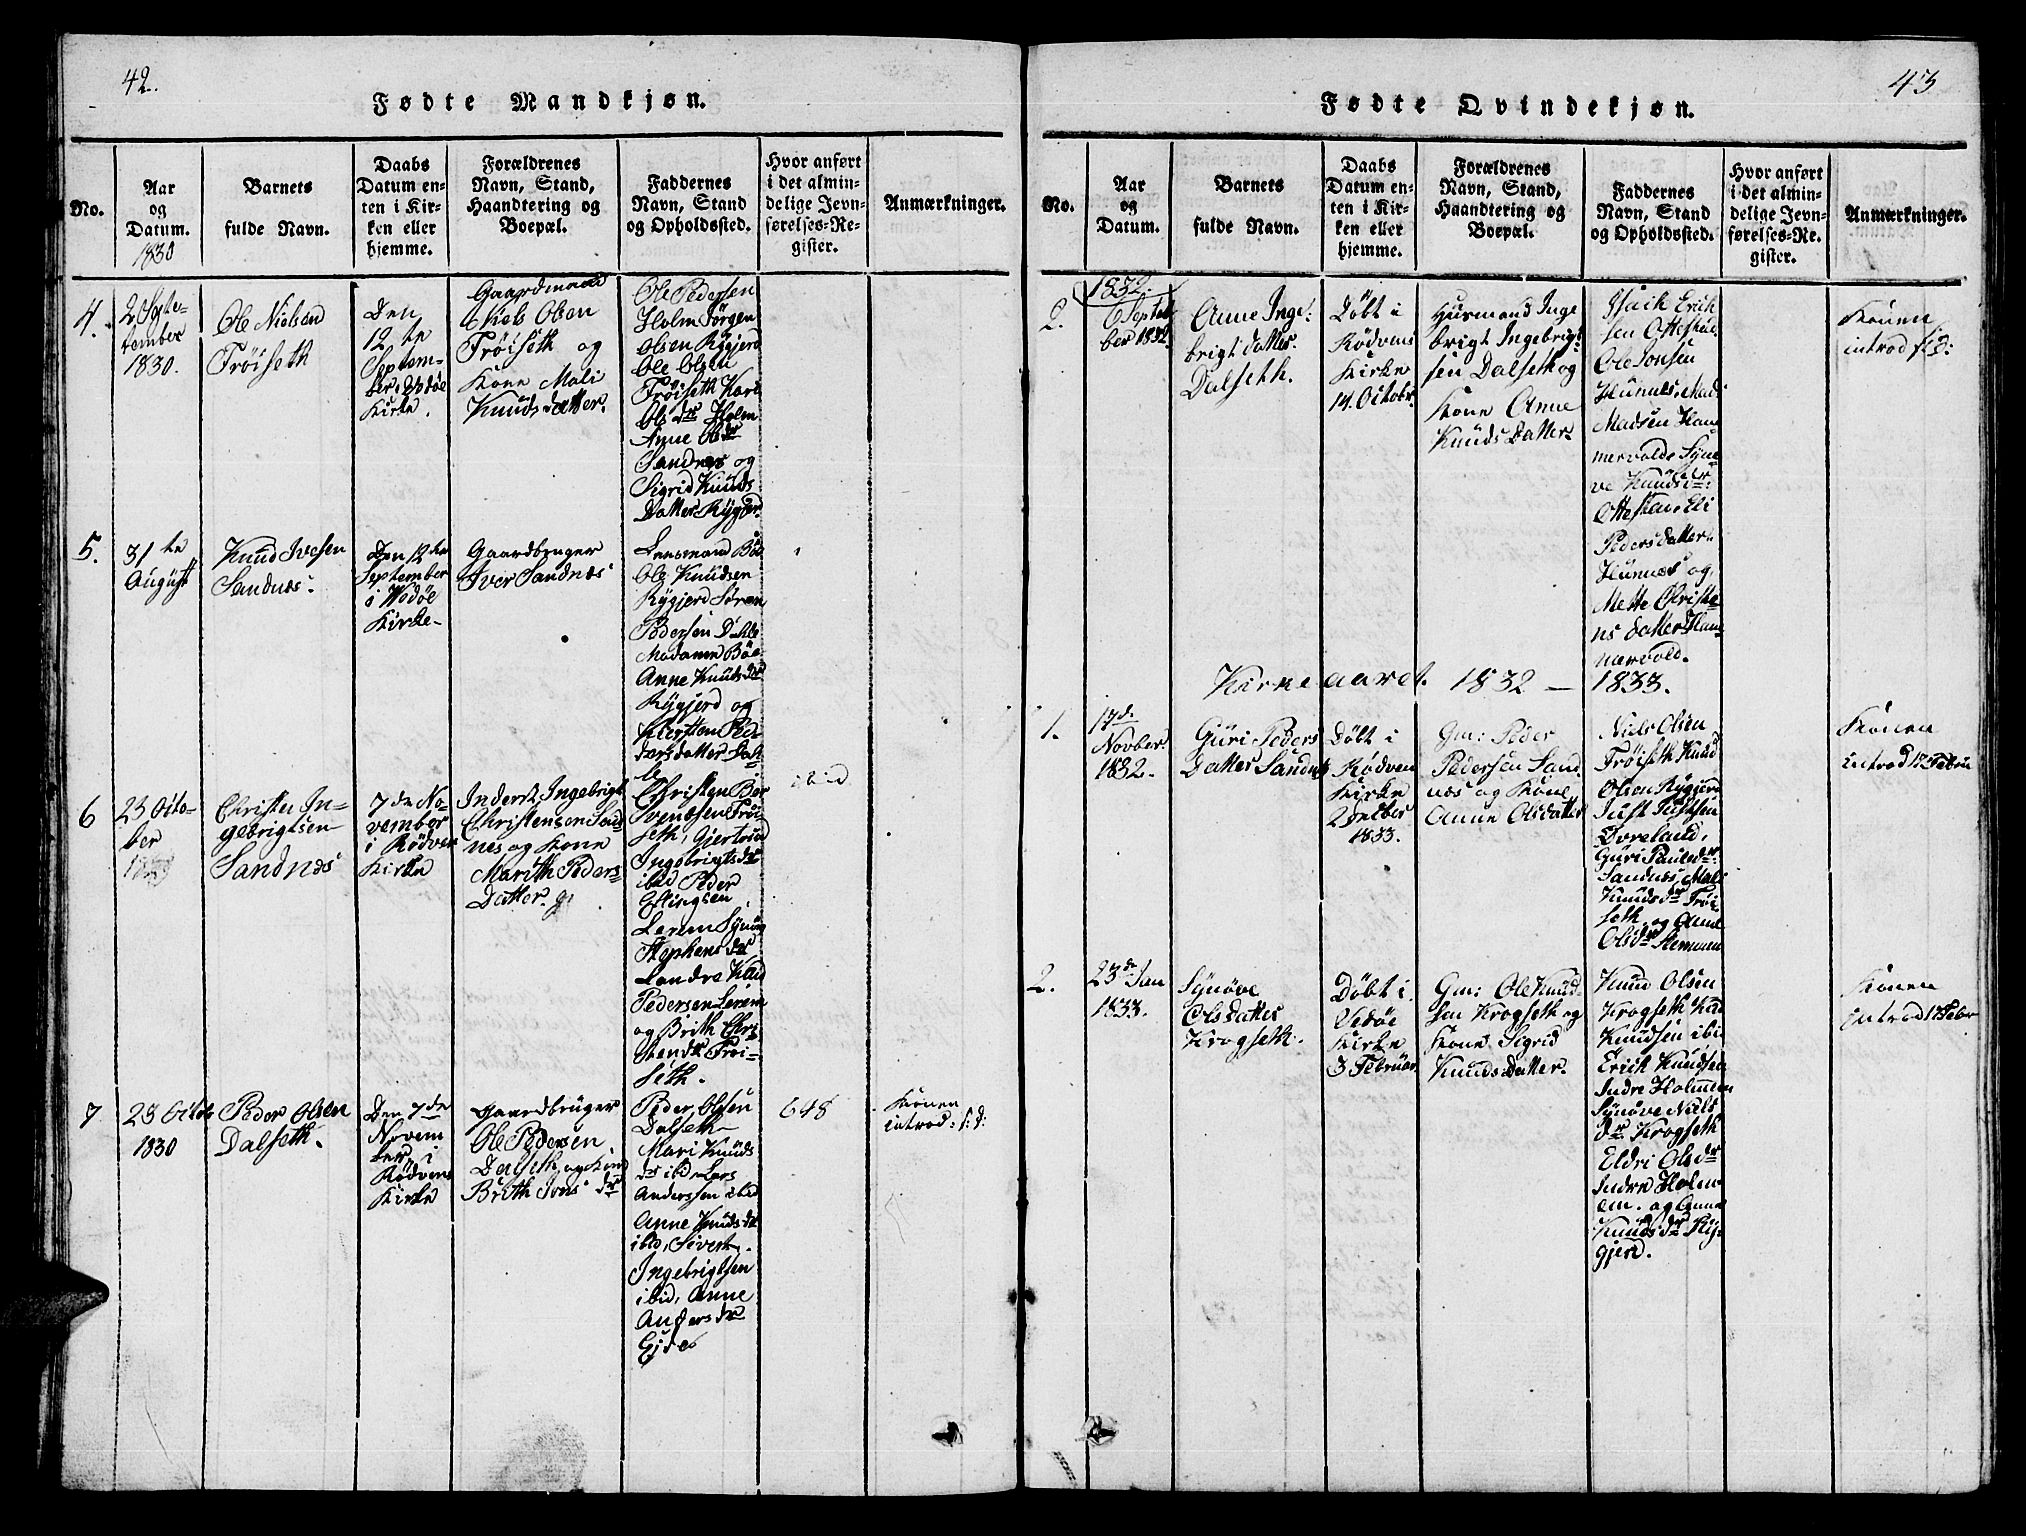 42.
Fødte Mandkjøn.
No.
Aar
og
Datum.
1830
Barnets
fulde Navn.
Daabs
Datum en-
ten i Kir-
ken eller
hjemme.
Forældrenes
Navn, Stand,
Haandtering og
Boepæl.
Faddernes
Navn, Stand
og Opholdssted.
Hvor anført
i det almin-
delige Jevn-
førelses-Re-
gister.
Anmærkninger.
4.
2 Septe-
tember
1830.
Ole Nielsen
Tröiseth
Den
12te
Septem-
ber
Kirke.
Gaardmand
Niels Olsen
Tröiseth og
Kone Mali
Knudsdatter.
Ole Pedersen
Holm Jörgen
Olsen Rygjerd
Ole Olsen
Tröiseth Kari
Ols dr Holm
Anne Olsdr
Sandnæs og
Sigrid Knuds
Datter Rygjer.
5.
31te
August
Knud Ivesen
Sandnæs.
Den 12te
September
i Wedöe
Kirke.
Gaardbruger
Iver Sandnæs
Lensmand Böe
Ole Knudsen
Rygjerd Sören
Pedersen Dahle
Madamen Böe
Anne Knudsdr
Rygjerd og
Kirsten Pe-
dersdatter Dah-
le
6
23 Octo-
ber
Christen In-
gebrigtsen
Sandnæs
7de No-
vember
i Rödven
Kirke
Inderst Ingebrigt
Christensen Sand-
nes og Kone
Marith Peders-
Datter.
Christen Ber
Svendsen Tröi-
seth, Gjertrud
Ingebrigtsdr
ibid Peder
Ellingsen
Lerem Synöv
Stephensdr
Landre Knud
Pedersen Lerem
og Brith Chri-
stendr Tröi-
seth.
ibid
7
23 Octob
1830
Peder Olsen
Dalseth.
Den 7de
Novem
ber i
Rödvens
Kirke
Gaardbruger
Ole Pedersen
Dalseth og Kone
Brith Jons dr
Peder Olsen
Dalseth
Mari Knuds
dr ibid, Lars
Anderssen ibid
Anne Knuds dr
ibid, Sivert
Ingebrigtsen
ibid, Anne
Anders dr
Ejde
648
Konen
introd: s: d:
43
Fødte Qvindekjøn.
No.
Aar
og
Datum.
Barnets
fulde Navn.
Daabs
Datum en-
ten i Kir-
ken eller
hjemme.
Forældrenes
Navn, Stand,
Haandtering og
Boepæl.
Faddernes
Navn, Stand
og Opholdssted.
Hvor anført
i det almin-
delige Jevn-
førelses-Re-
gister.
Anmærkninger.
2.
1832.
6 Septem
ber 1832.
Anne Inge-
brigtdatter
Dalseth.
Döbt i
Rödvens
Kirke
14. Octobr.
Huusmand Inge
brigt Ingebrigt-
sen Dalseth og
Kone Anne
Knuds Datter
Isack Erich
sen Ottestad
Ole Jonsen
Hunnes, Mad
Madsen Ham-
mervolde Syne-
ve Knudsdr:
Ottestad, Eli
Pedersdatter
Hunnæs og
Mette Christe-
ns datter Ham-
mervold.
Konen
introd s: d:
Kirkeaaret 1832 — 1833.
1.
17de
Novber
1832.
Guri Peders
Datter Sandnæs
Döbt i
Rödven
Kirke
1833.
Gm: Peder
Pedersen Sand
næs og Kone
Anne Olsdatter
Niels Olsen
Tröiseth Knud
Olsen Rygjerd
Just Justsen
Qvreland,
Guri Paulsdr:
Sandnæs, Mali
Knuds dr Tröi-
seth og Anne
Olsdr
Konen
introd 17 Febru
2.
23de Jan
1833.
Synöve
Olsdatter
Krogseth.
Döbt i
Vedöe
Kirke
3 Februar
Gm: Ole Knud-
sen Krogseth og
Kone Sigrid
Knuds Datter.
Knud Olsen
Krogseth Knud
Knudsen ibi
Erich Knudsen
Indre Holmem
Synöve Niels
dr Krogseth
Eldri Olsdr
Indre Holm-
em. og Anne
Knudsdr Ryg-
gjerd.
Konen
introd 17 Febr